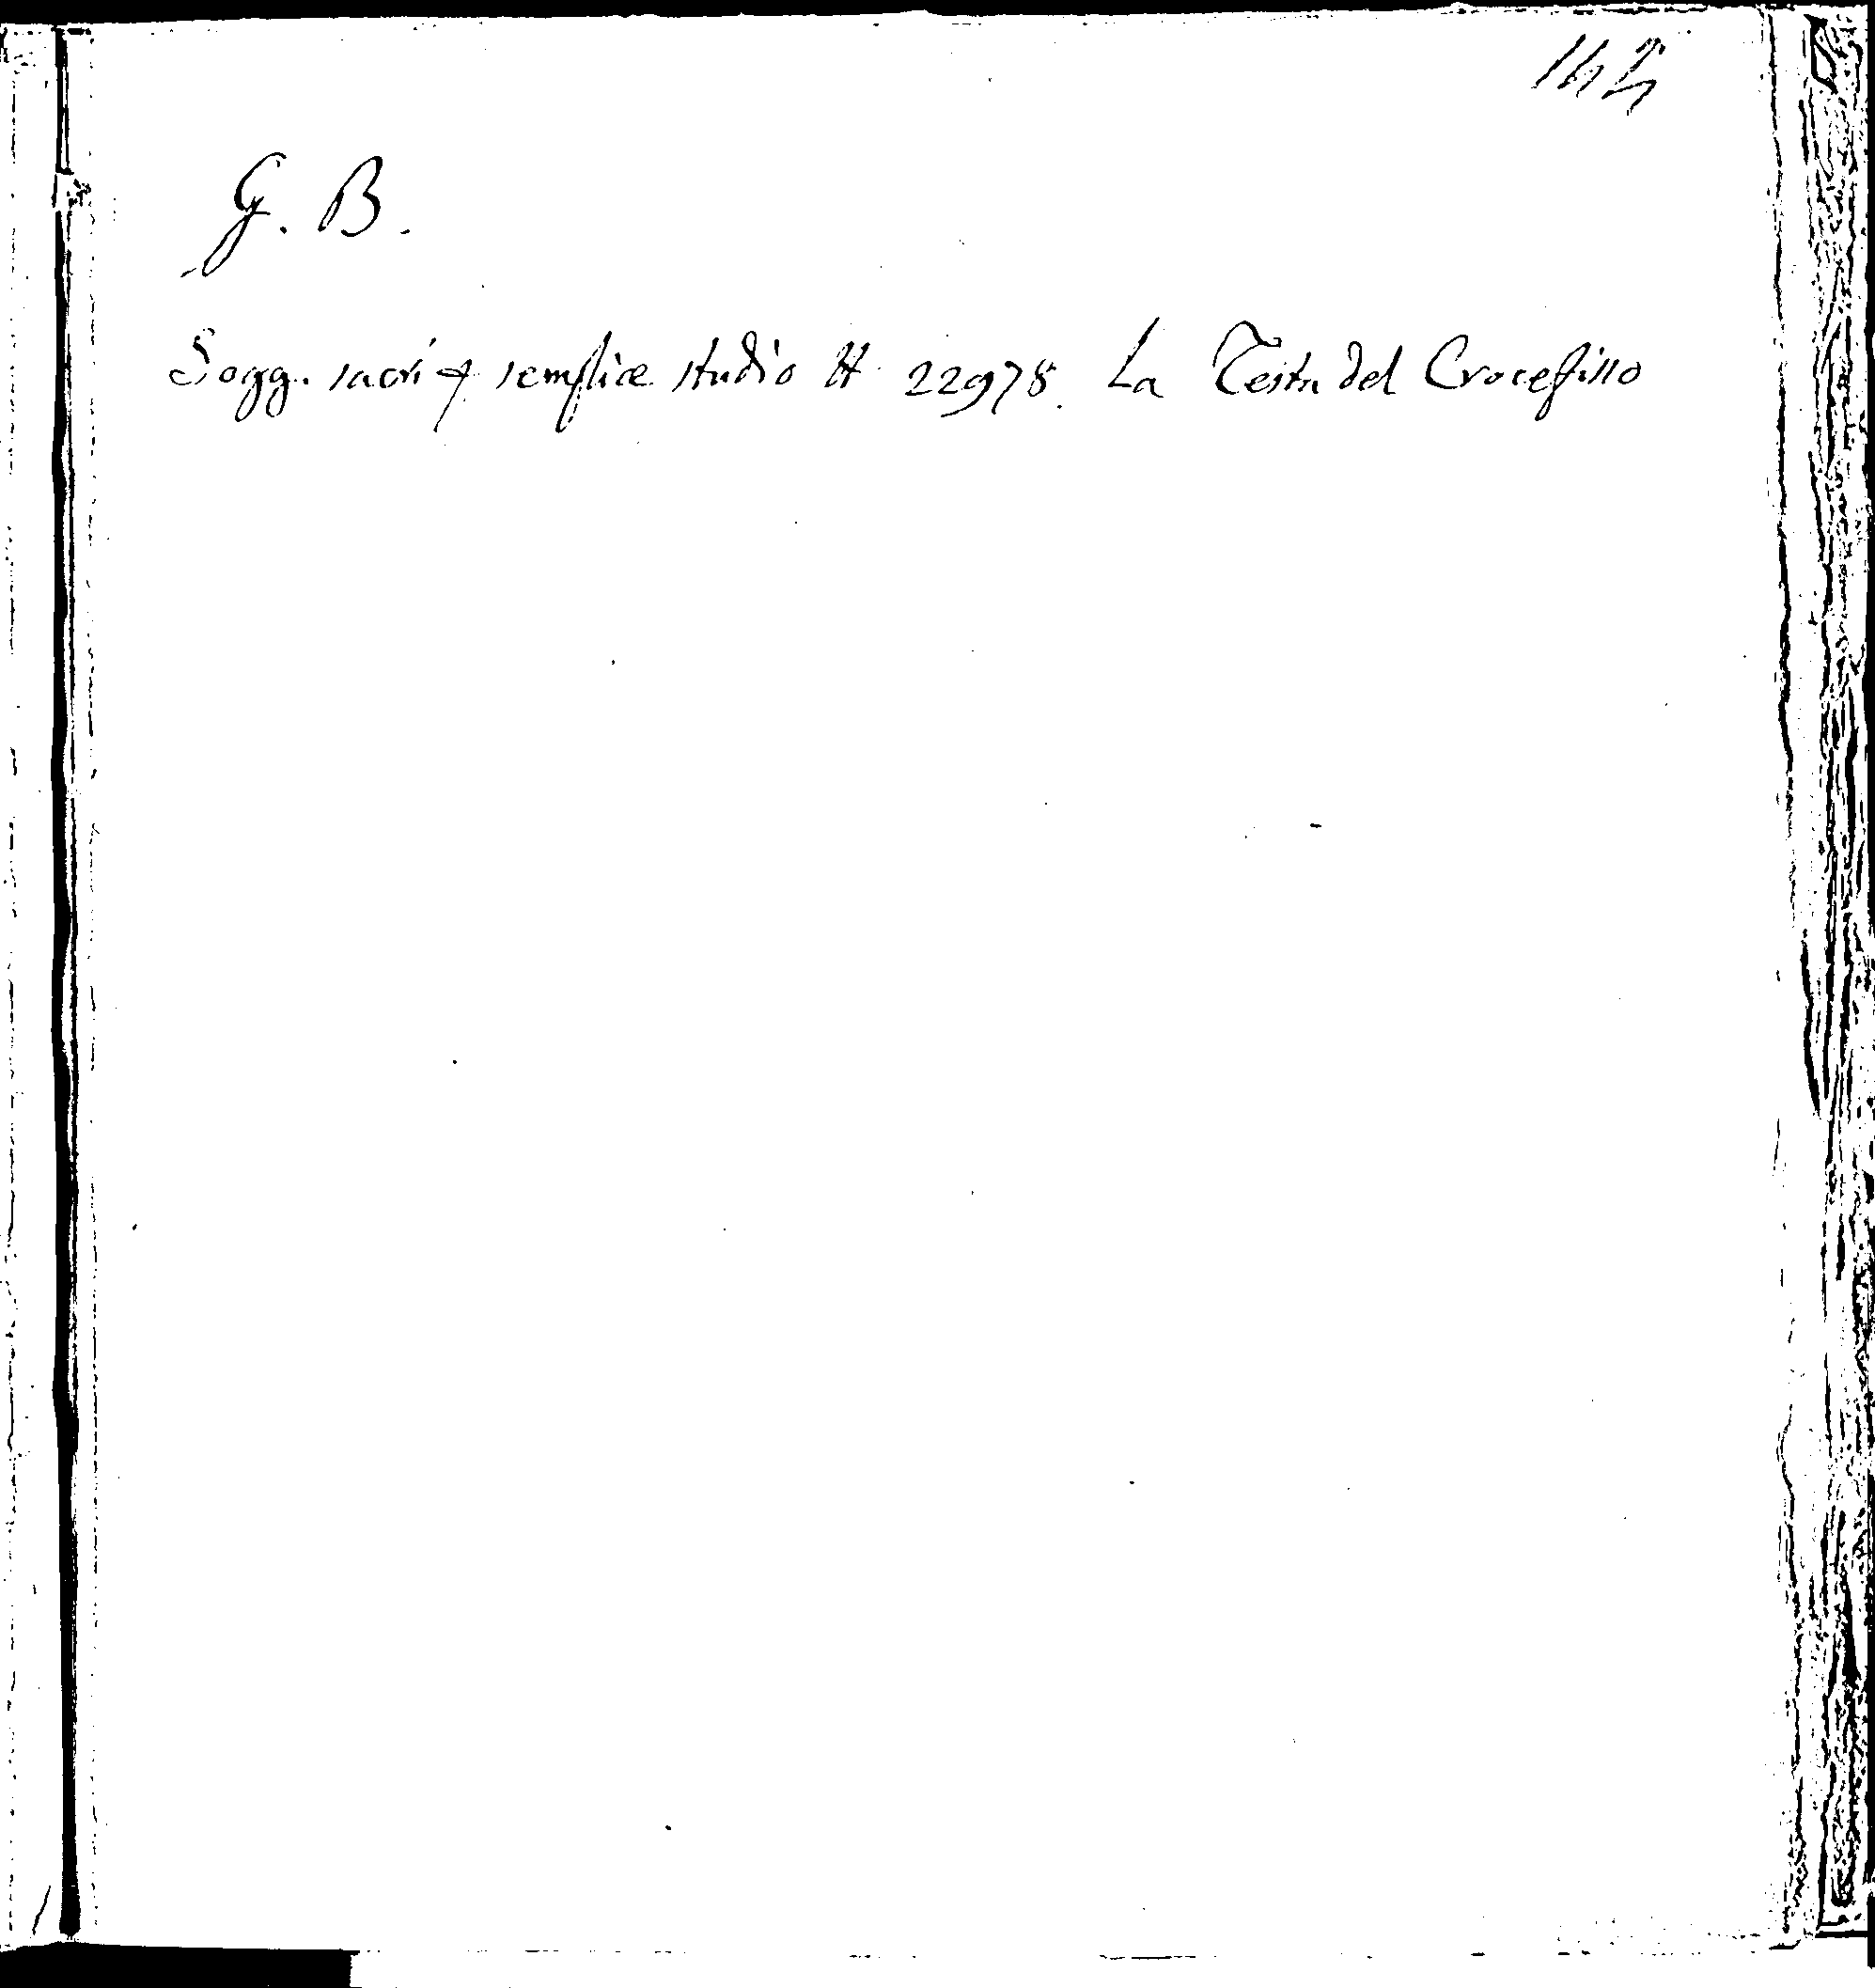 144
G. B.
Sogg. sacri p semplice studio H 22978. La Testa del Crocefisso